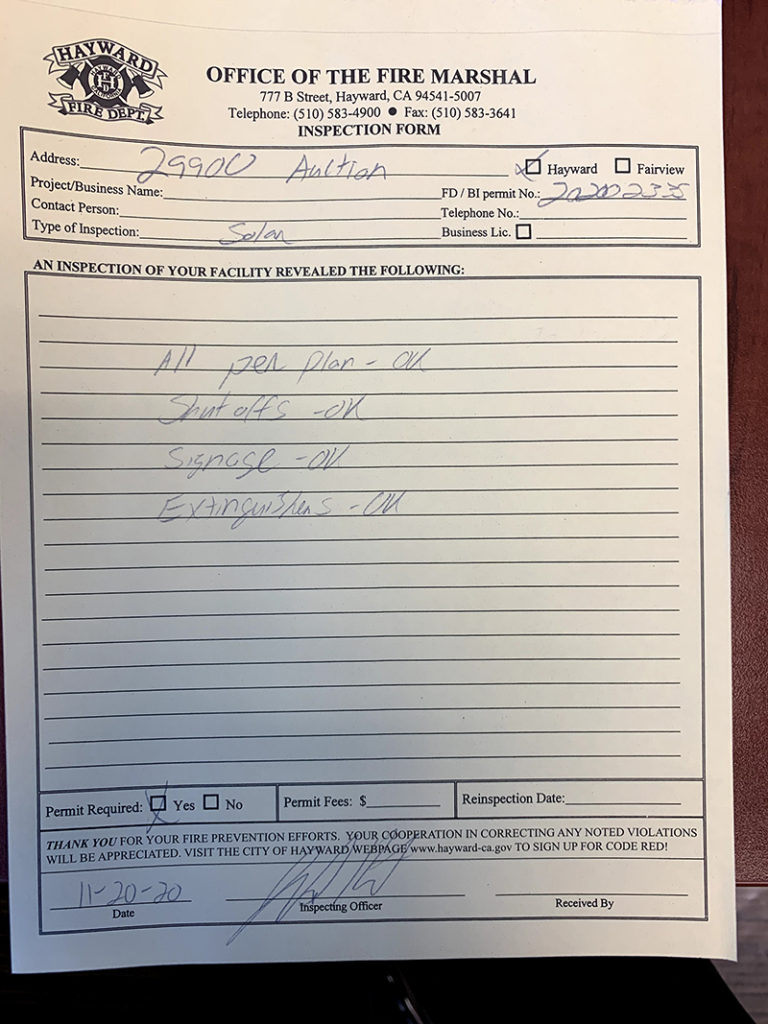 HAYWARD
HAYWARD
HFD
CALIFORNIA
FIRE DEPT.
OFFICE OF THE FIRE MARSHAL
777 B Street, Hayward, CA 94541-5007
Telephone: (510) 583-4900 ● Fax: (510) 583-3641
INSPECTION FORM
Address: 29900 Auction Hayward Fairview
Project/Business Name: FD / BI permit No.: 202002335
Contact Person: Telephone No.:
Type of Inspection: Solar Business Lic.
AN INSPECTION OF YOUR FACILITY REVEALED THE FOLLOWING:
All per plan - OK
Shut offs - OK
Signage - OK
Extinguishers - OK
Permit Required: Yes No Permit Fees: $ Reinspection Date:
THANK YOU FOR YOUR FIRE PREVENTION EFFORTS. YOUR COOPERATION IN CORRECTING ANY NOTED VIOLATIONS
WILL BE APPRECIATED. VISIT THE CITY OF HAYWARD WEBPAGE www.hayward-ca.gov TO SIGN UP FOR CODE RED!
11-20-20
Date Inspecting Officer Received By